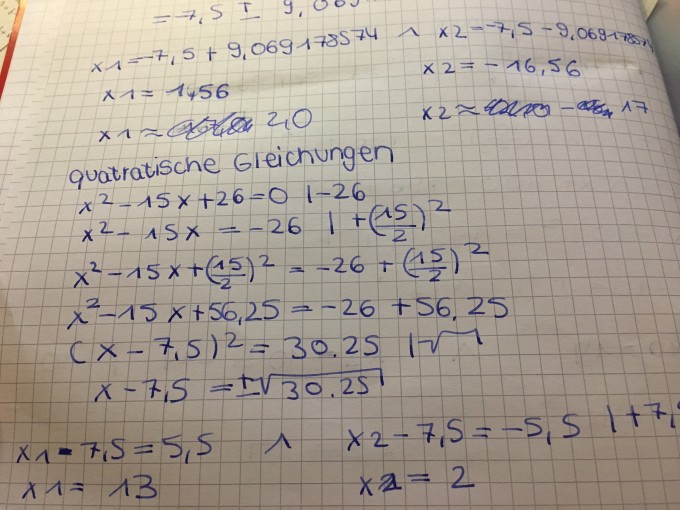 = -7,5 ± 9,069
x1 = -7,5 + 9,069178574 ∧ x2 = -7,5 - 9,069178574
x1 = 1,56 x2 = -16,56
x1 ≈ 2,0 x2 ≈ - 17
quatratische Gleichungen
x² - 15x + 26 = 0 | -26
x² - 15x = -26 | + (15/2)²
x² - 15x + (15/2)² = -26 + (15/2)²
x² - 15x + 56,25 = -26 + 56,25
(x - 7,5)² = 30.25 | √
x - 7,5 = ±√30.25
x1 - 7,5 = 5,5 ∧ x2 - 7,5 = -5,5 | +7,
x1 = 13 x2 = 2